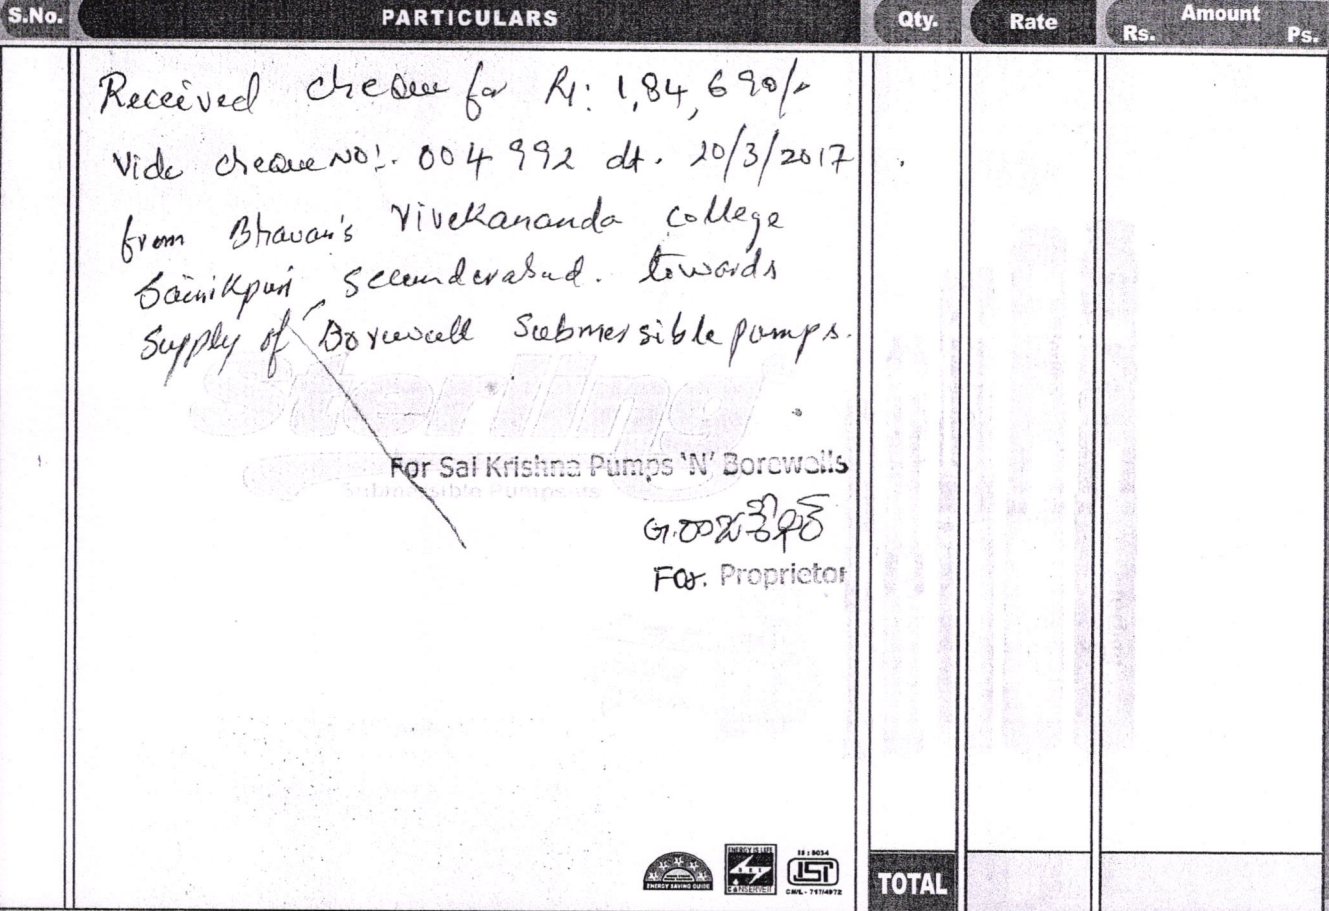 S.No. PARTICULARS Qty. Rate Amount
Rs. Ps.
Received cheque for Rs: 1,84,690/-
Vide cheque NO:. 004992 dt. 20/3/2017
from Bhavan's Vivekananda college
Sainikpuri Secunderabad. towards
Supply of Borewell Submersible pumps.
Sterling
Submersible Pumpsets
For Sai Krishna Pumps 'N' Borewells
For. Proprietor
ENERGY SAVING GUIDE
ENERGY IS LIFE
CONSERVE IT
IS : 8034
ISI
CM/L - 7174972
TOTAL